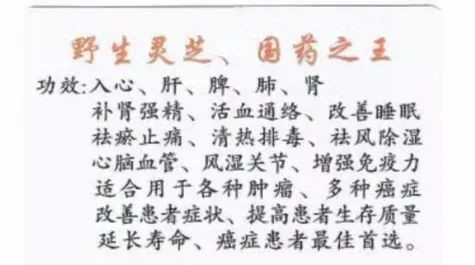 野生灵芝、国药之王
功效:入心、肝、脾、肺、肾
补肾强精、活血通络、改善睡眠
祛瘀止痛、清热排毒、祛风除湿
心脑血管、风湿关节、增强免疫力
适合用于各种肿瘤、多种癌症
改善患者症状、提高患者生存质量
延长寿命、癌症患者最佳首选。